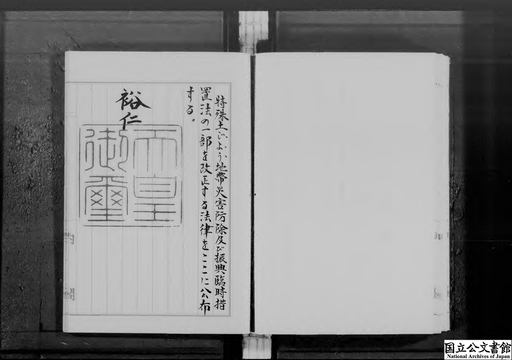 特殊土じよう地帶災害防除及び振興臨時措
置法の一部を改正する法律をここに公布
する。
裕仁
天皇
御璽
国立公文書館
National Archives of Japan